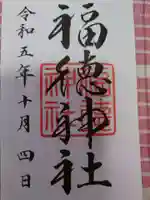 福徳神社
令和五年十月四日